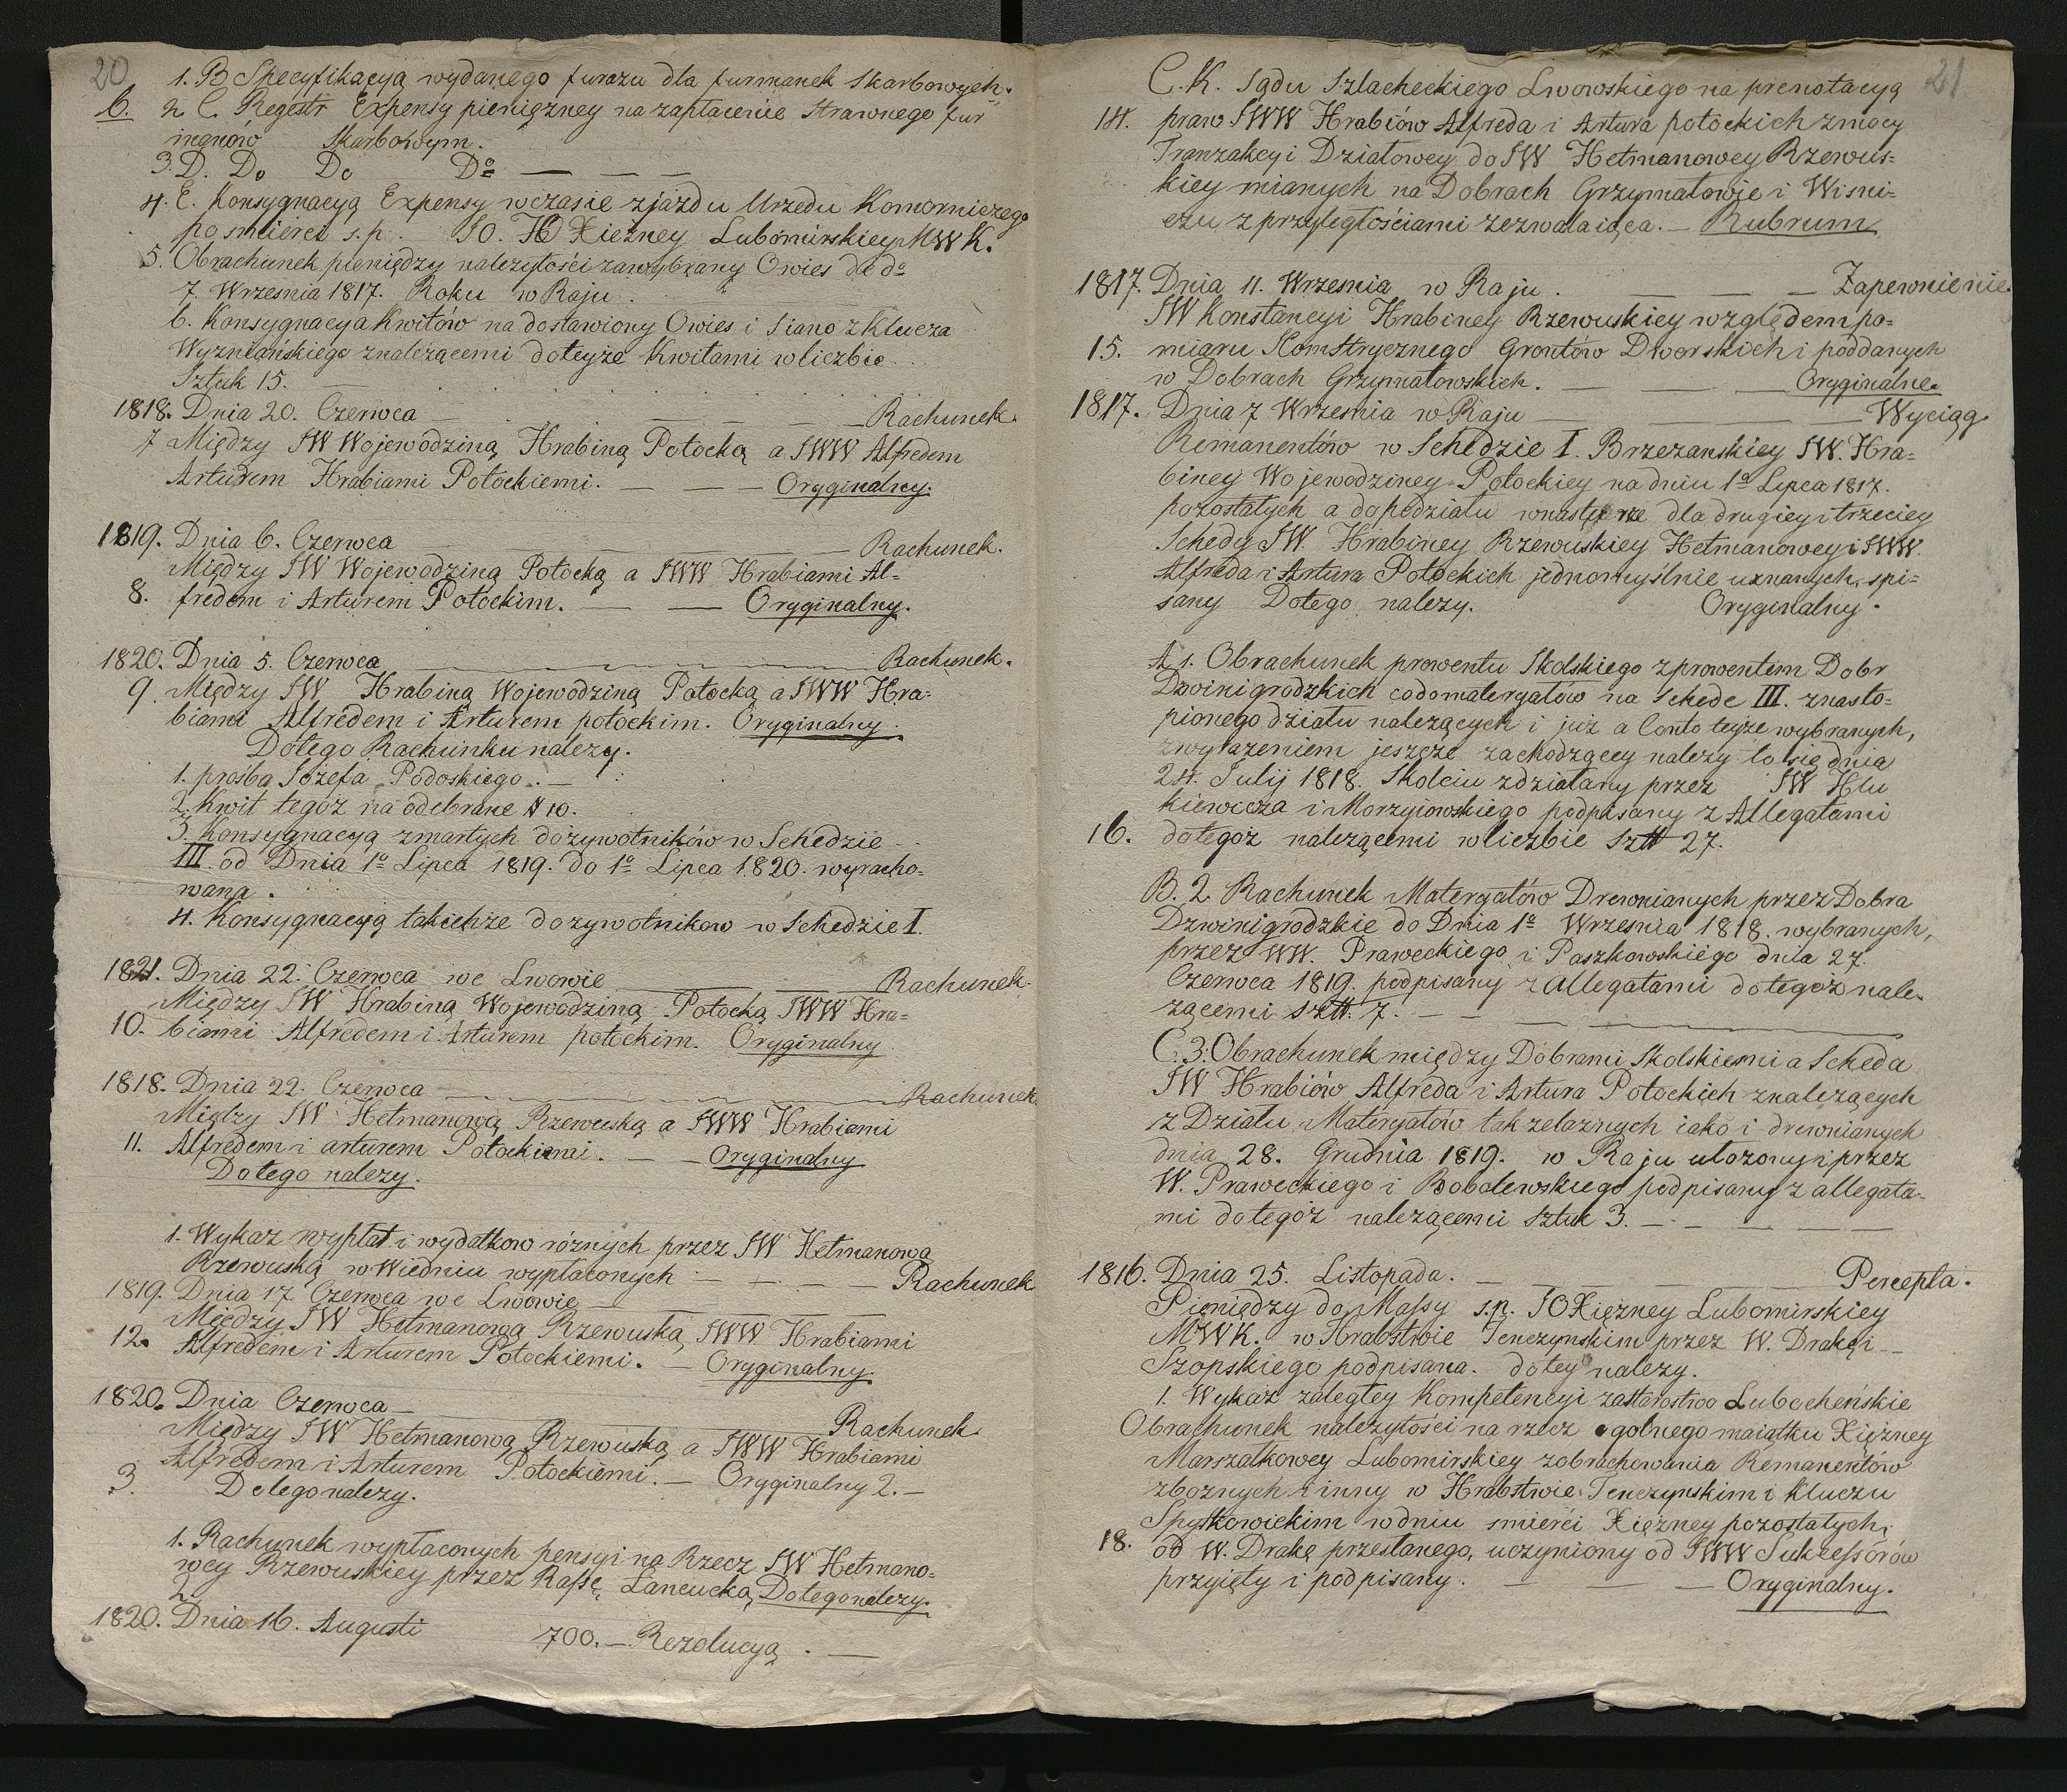 20
1. B Specyfikacyą wydanego furazu dla furmanek Skarbowych.
6. 2 C. Regestr Expensy pieniężney na zapłacenie Strawnego fur
manow Skarbowym.
3. D. Do Do Do — — —
4. E. Konsygnacyą Expensy wczasie zjazdu Urzedu Komorniczego
po smierci s.p. JO. Xiezney Lubomirskiey MWK.
5. Obrachunek pieniędzy nalezytości zawybrany Owies de do
7. Wrzesnia 1817. Roku w Raju.
6. Konsygnacya Kwitów na dostawiony Owies i Siano z Klucza
Wyzniańskiego znalezącemi doteyże Kwitami wliczbie
Sztuk 15.
1818. Dnia 20. Czerwca — — — Rachunek.
7 Między JW Wojewodziną Hrabiną Potocką a JWW Alfredem
Arturem Hrabiami Potockiemi. — — — Oryginalny.
1819. Dnia 6. Czerwca — — — Rachunek.
Między JW Wojewodziną Potocką a JWW Hrabiami Al=
8. fredem i Arturem Potockim. — — Oryginalny.
1820. Dnia 5. Czerwca — — — Rachunek.
9. Między JW Hrabiną Wojewodziną Potocką a JWW Hra=
biami Alfredem i Arturem potockim. Oryginalny.
Dotego Rachunku nalezy.
1. prośba Józefa Podoskiego. —
2. Kwit tegoż na odebrane # 10.
3. Konsygnacyą zmarłych dożywotników w Schedzie
III. od Dnia 1o Lipca 1819. do 1o Lipca 1820. wyracho=
wana.
4. Konsygnacyą takichże dozywotnikow w Schedzie I.
1821. Dnia 22. Czerwca we Lwowie — — Rachunek.
Między JW Hrabiną Wojewodziną Potocką JWW Hra=
10. biami Alfredem i Arturem potockim. Oryginalny
1818. Dnia 22. Czerwca — — Rachunek
Między JW Hetmanową Rzewuską a JWW Hrabiami
11. Alfredem i arturem Potockiemi. — — Oryginalny
Dotego nalezy.
1. Wykaz wypłat i wydatkow róznych przez JW Hetmanową
Rzewuską w Wiedniu wypłaconych — — — — Rachunek
1819. Dnia 17. Czerwca we Lwowie — —
Między JW Hetmanową Rzewuską JWW Hrabiami
12. Alfredem i Arturem Potockiemi. — Oryginalny.
1820. Dnia Czerwca — — Rachunek.
Między JW Hetmanową Rzewuską a JWW Hrabiami
Alfredem i Arturem Potockiemi. — Oryginalny 2. —
3. Dotego nalezy.
1. Rachunek wypłaconych pensyi na Rzecz JW Hetmano=
wey Rzewuskiey przez Kassę Łancucką Dotego nalezy.
2
1820. Dnia 16. Augusti 700. — Rezolucyą. —
21
C.K. Sądu Szlacheckiego Lwowskiego na prenotacyą
14. praw JWW Hrabiów Alfreda i Artura potockich zmocy
Tranzakcyi Działowey do JW Hetmanowey Rzewus=
kiey mianych na Dobrach Grzymałowie i Wisni=
czu z przyległościami zezwalaiąca. — Rubrum
1817. Dnia 11. Wrzesnia w Raju. — — — Zapewnienie.
JW Konstancyi Hrabiney Rzewuskiey względem po=
15. miaru Komstrycznego Grontów Dworskich i poddanych
w Dobrach Grzymałowskich. — — — Oryginalne.
1817. Dnia 7 Wrzesnia w Raju — — — Wyciąg
Remanentów w Schedzie I. Brzezanskiey JW. Hra=
biney Wojewodziney Potockiey na dniu 1o Lipca 1817.
pozostałych a dopodziału wnasterze dla drugiey i trzeciey
Schedy JW. Hrabiney Rzewuskiey Hetmanowey i JWW.
Alfreda i Artura Potockich jednomyślnie uznanych, spi=
sany Dotego nalezy. Oryginalny.
A 1. Obrachunek prowentu Skolskiego zprowentem Dobr
Dzwinigrodzkich codomateryałów na Schede III. znasto=
pionego działu nalezących i już a Conto teyże wybranych,
zwyrazeniem jeszcze zachodzącey nalezy to się dnia
24. Julij 1818. Skolciu zdziałany przez JW Hlu
kiewicza i Morzyiowskiego podpisany z Allegatami
16. dotegoz nalezącemi wliczbie Szt 27.
B. 2. Rachunek Materyałów Drewnianych przez Dobra
Dzwinigrodzkie do Dnia 1o Wrzesnia 1818. wybranych,
przez WW. Praweckiego i Paszkowskiego dnia 27.
Czerwca 1819. podpisany z Allegatami dotegoż nale.
zącemi szt. 7. — — — —
C. 3. Obrachunek między Dobrami Skolskiemi a Scheda
JW Hrabiów Alfreda i Artura Potockich znalezących
z Działu Materyałów tak zelaznych iako i drewnianych
dnia 28. Grudnia 1819. w Raju ulozony i przez
W. Praweckiego i Bobolewskiego podpisany z allegata-
mi dotegoż nalezącemi Sztuk 3. — — — —
1816. Dnia 25. Listopada. — — — Percepta.
Pieniędzy do Massy s.p. JO Xięzney Lubomirskiey
MWK. w Hrabstwie Tenczynskim przez W. Drakę i
Szopskiego podpisana. dotey nalezy.
1. Wykaz zaległey Kompetencyi zastarostwo Lubocheńskie
Obrachunek nalezytości na rzecz ogolnego maiątku Xiężney
Marszałkowey Lubomirskiey zobrachowania Remanentów
zboznych i inny w Hrabstwie Tenczynskim i Kluczu
Spytkowickim wdniu smierci Xiężney pozostałych,
18. od W. Drakę przesłanego, uczyniony od JWW Sukcessorów
przyięty i podpisany. — — — Oryginalny.